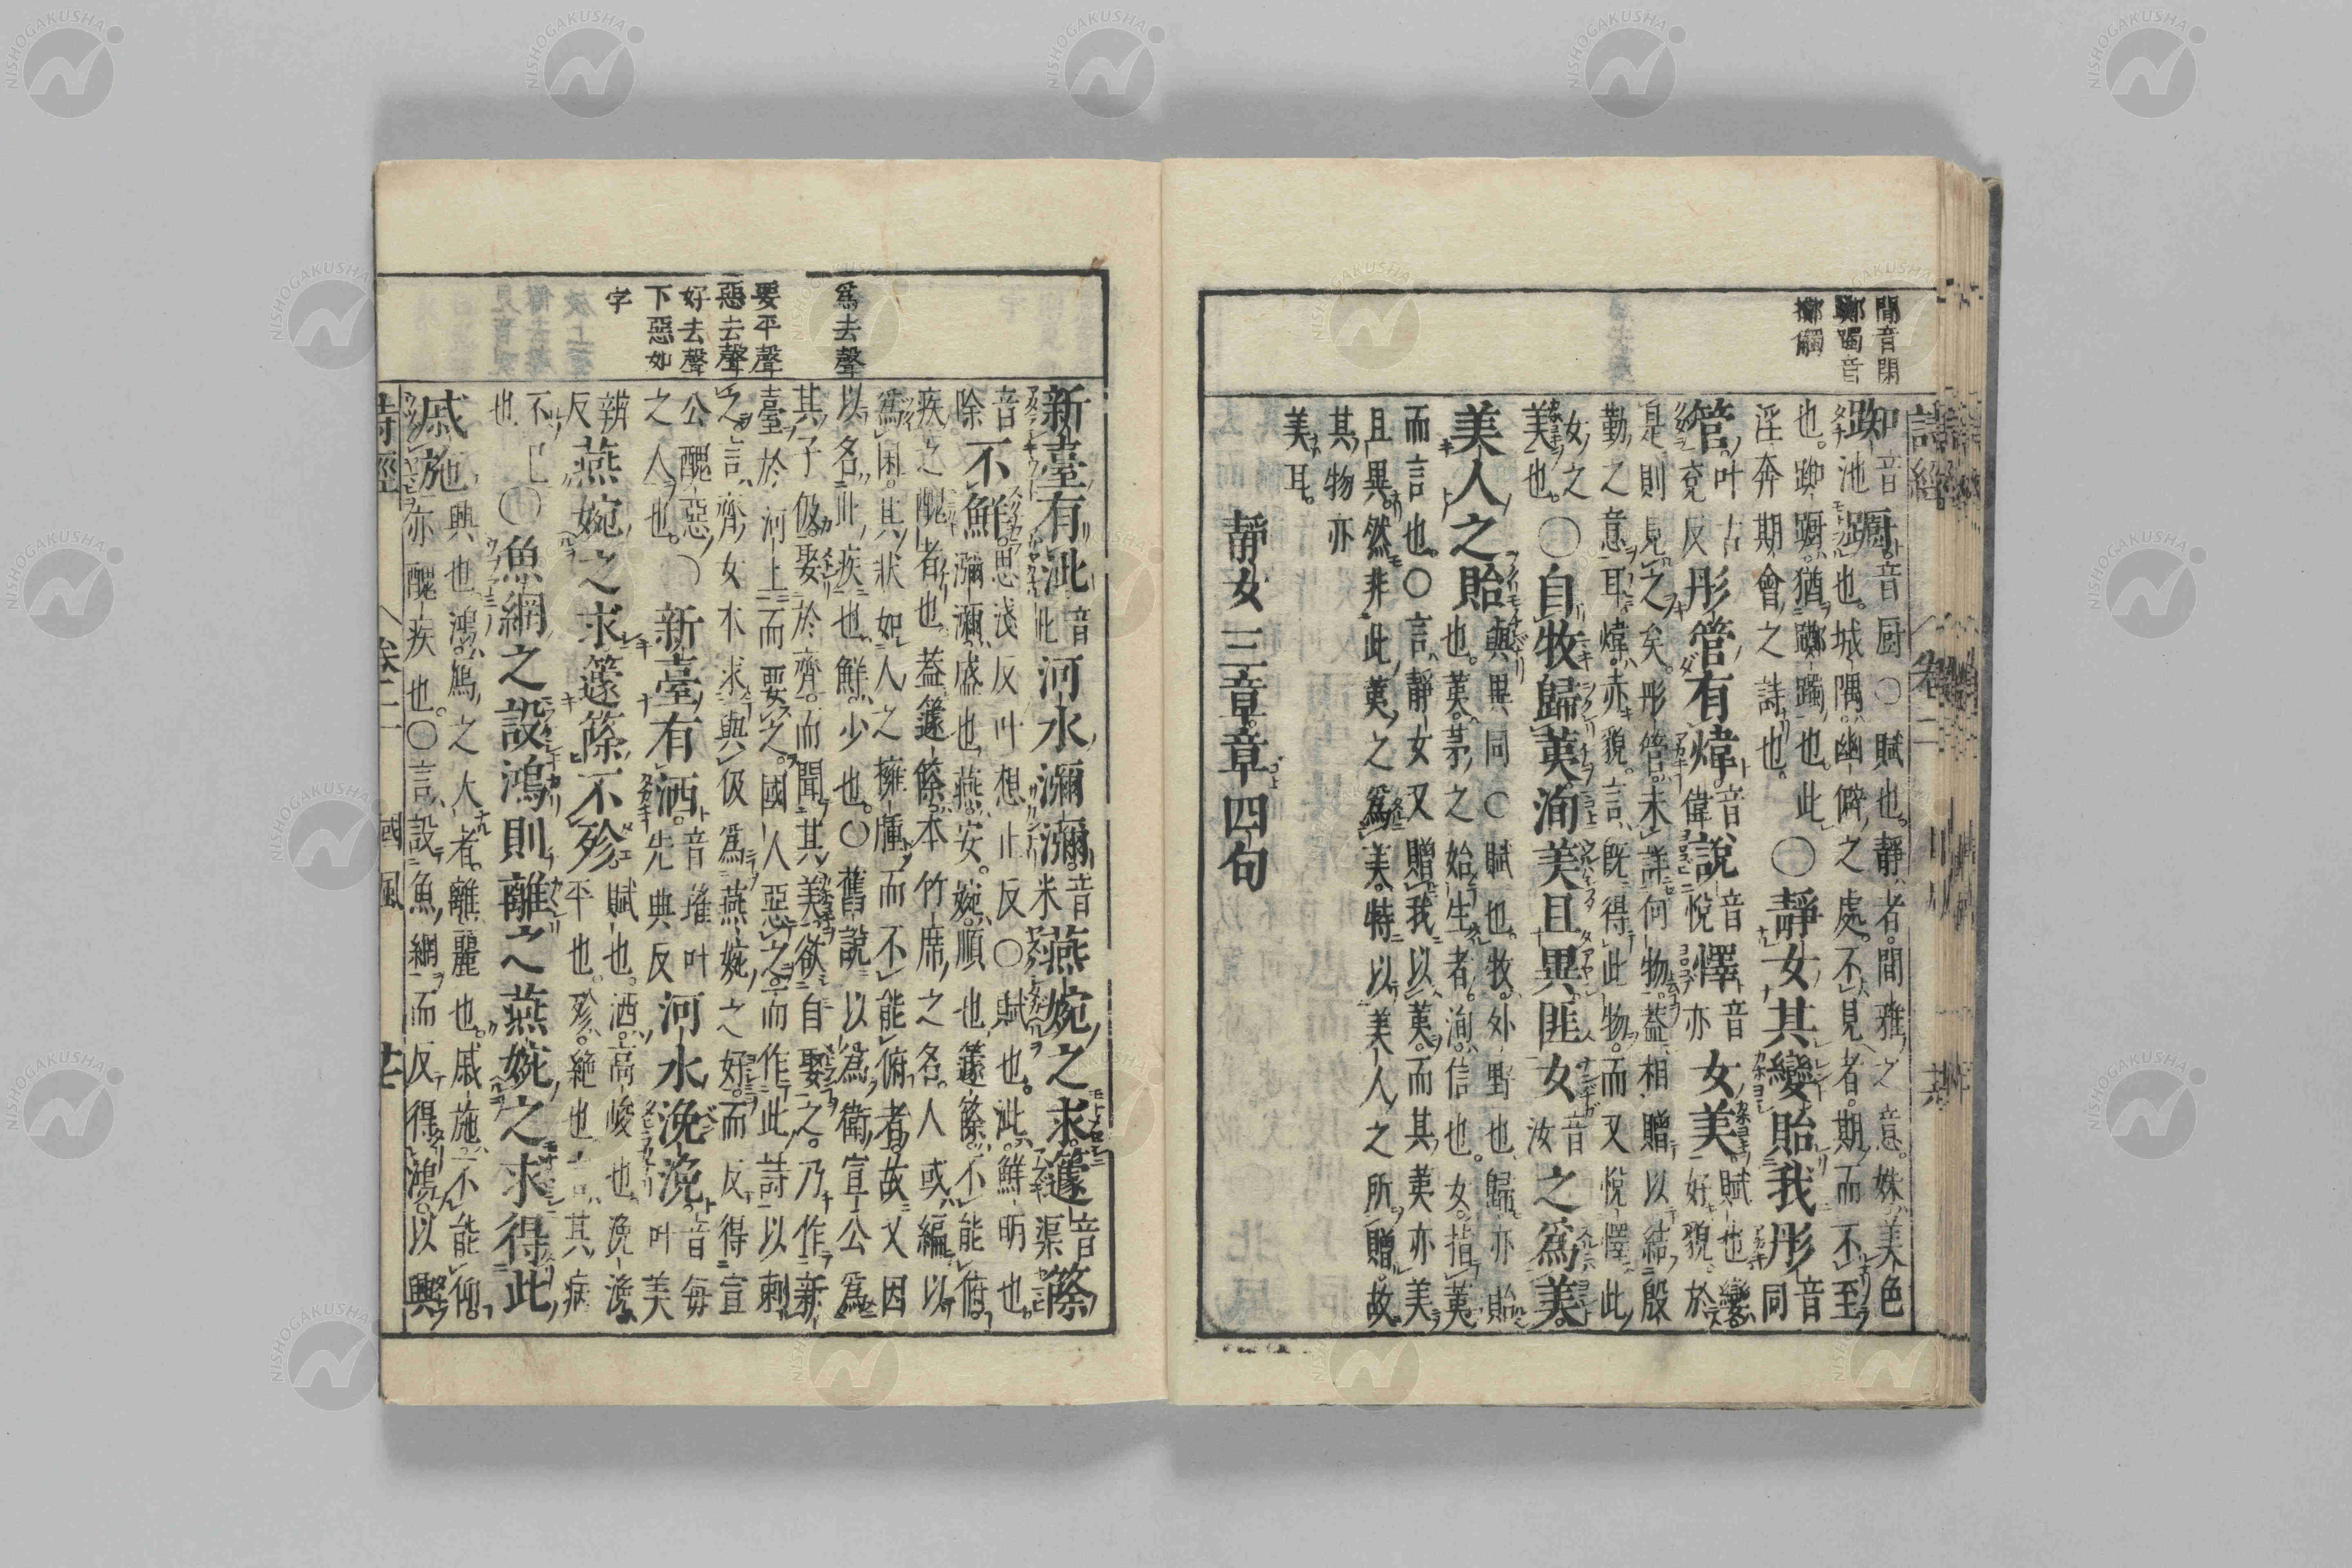 間音閑
躑躅音
擲
詩經 卷二
踟音池蹰音厨○賦也。靜者。間雅之意。姝美色
也。城隅。幽僻之處。不見者。期而不至
也。踟蹰。猶躑躅也。此
淫奔期會之詩也。○靜女其孌貽我彤音同
管叶古兗反彤管有煒音偉說音悅懌音亦女美賦也孌好貌。於
是則見之矣。彤管未詳何物。蓋相贈以結殷
勤之意耳。煒。赤貌。言既得此物。而又悅懌此
女之美也。○自牧歸荑洵美且異匪女音汝之爲美
美人之貽與異同○賦也。牧。外野也。歸亦貽
也。荑。茅之始生者。洵信也。女。指荑
而言也。○言靜女又贈我以荑。而其荑亦美
且異。然非此荑之爲美。特以美人之所贈。故
其物亦
美耳。
靜女三章章四句
爲去聲
要平聲
惡去聲
好去聲
下惡如
字
新臺有泚音此河水瀰瀰音米燕婉之求籧音渠篨
音除不鮮思淺反叶想止反○賦也。泚。鮮明也
瀰瀰。盛也。燕安。婉順也。籧篨。不能俯
疾之醜者也。蓋籧篨。本竹席之名。人或編以
爲囷。其狀如人之擁腫而不能俯者。故又因
以名此疾也。鮮。少也。○舊說以爲衛宣公爲
其子伋娶於齊。而聞其美欲自娶之。乃作新
臺於河上而要之。國人惡之。而作此詩以刺
之言齊女本求與伋爲燕婉之好。而反得宣
公醜惡之人也。○新臺有洒音漼叶先典反河水浼浼音每叶美
辨反燕婉之求籧篨不殄賦也。洒。高峻也。浼浼平也。殄。絶也。言其病
不已也○魚網之設鴻則離之燕婉之求得此
戚施興也。鴻。鴈之大者。離麗也。戚施。不能仰
亦醜疾也。○言設魚網而反得鴻。以興
詩經 卷二 國風
NISHOGAKUSHA